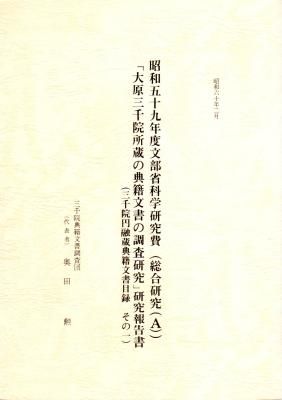 昭和六十年三月
昭和五十九年度文部省科学研究費（総合研究（A））
「大原三千院所蔵の典籍文書の調査研究」研究報告書
（三千院円融蔵典籍文書目録 その一）
三千院典籍文書調査団
（代表者） 奥田 勲